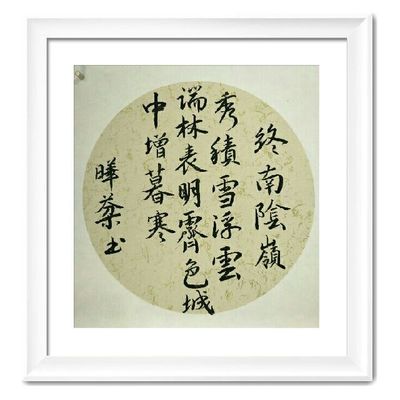 終南陰嶺
秀積雪浮雲
端林表明霽色城
中增暮寒
曄书